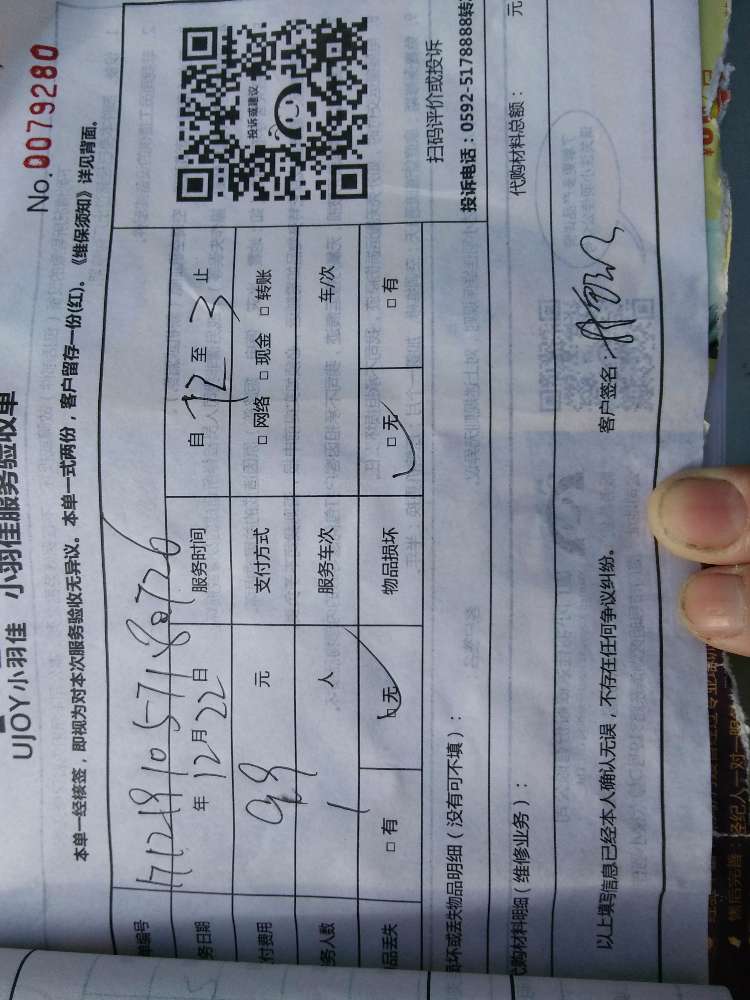 UJOY小羽佳 小羽佳服务验收单
No.0079280
本单一经核签，即视为对本次服务验收无异议。本单一式两份，客户留存一份(红)。《维保须知》详见背面。
单编号 1712191057180726
务日期 年12月22日 服务时间 自12至3止
付费用 99元 支付方式 □网络 □现金 □转账
务人数 1人 服务车次 车/次
品丢失 □有 □无 物品损坏 □无 □有
投诉或建议
扫码评价或投诉
投诉电话：0592-5178888转
坏或丢失物品明细（没有可不填）：
代购材料明细（维修业务）： 代购材料总额： 元
以上填写信息已经本人确认无误，不存在任何争议纠纷。 客户签名：